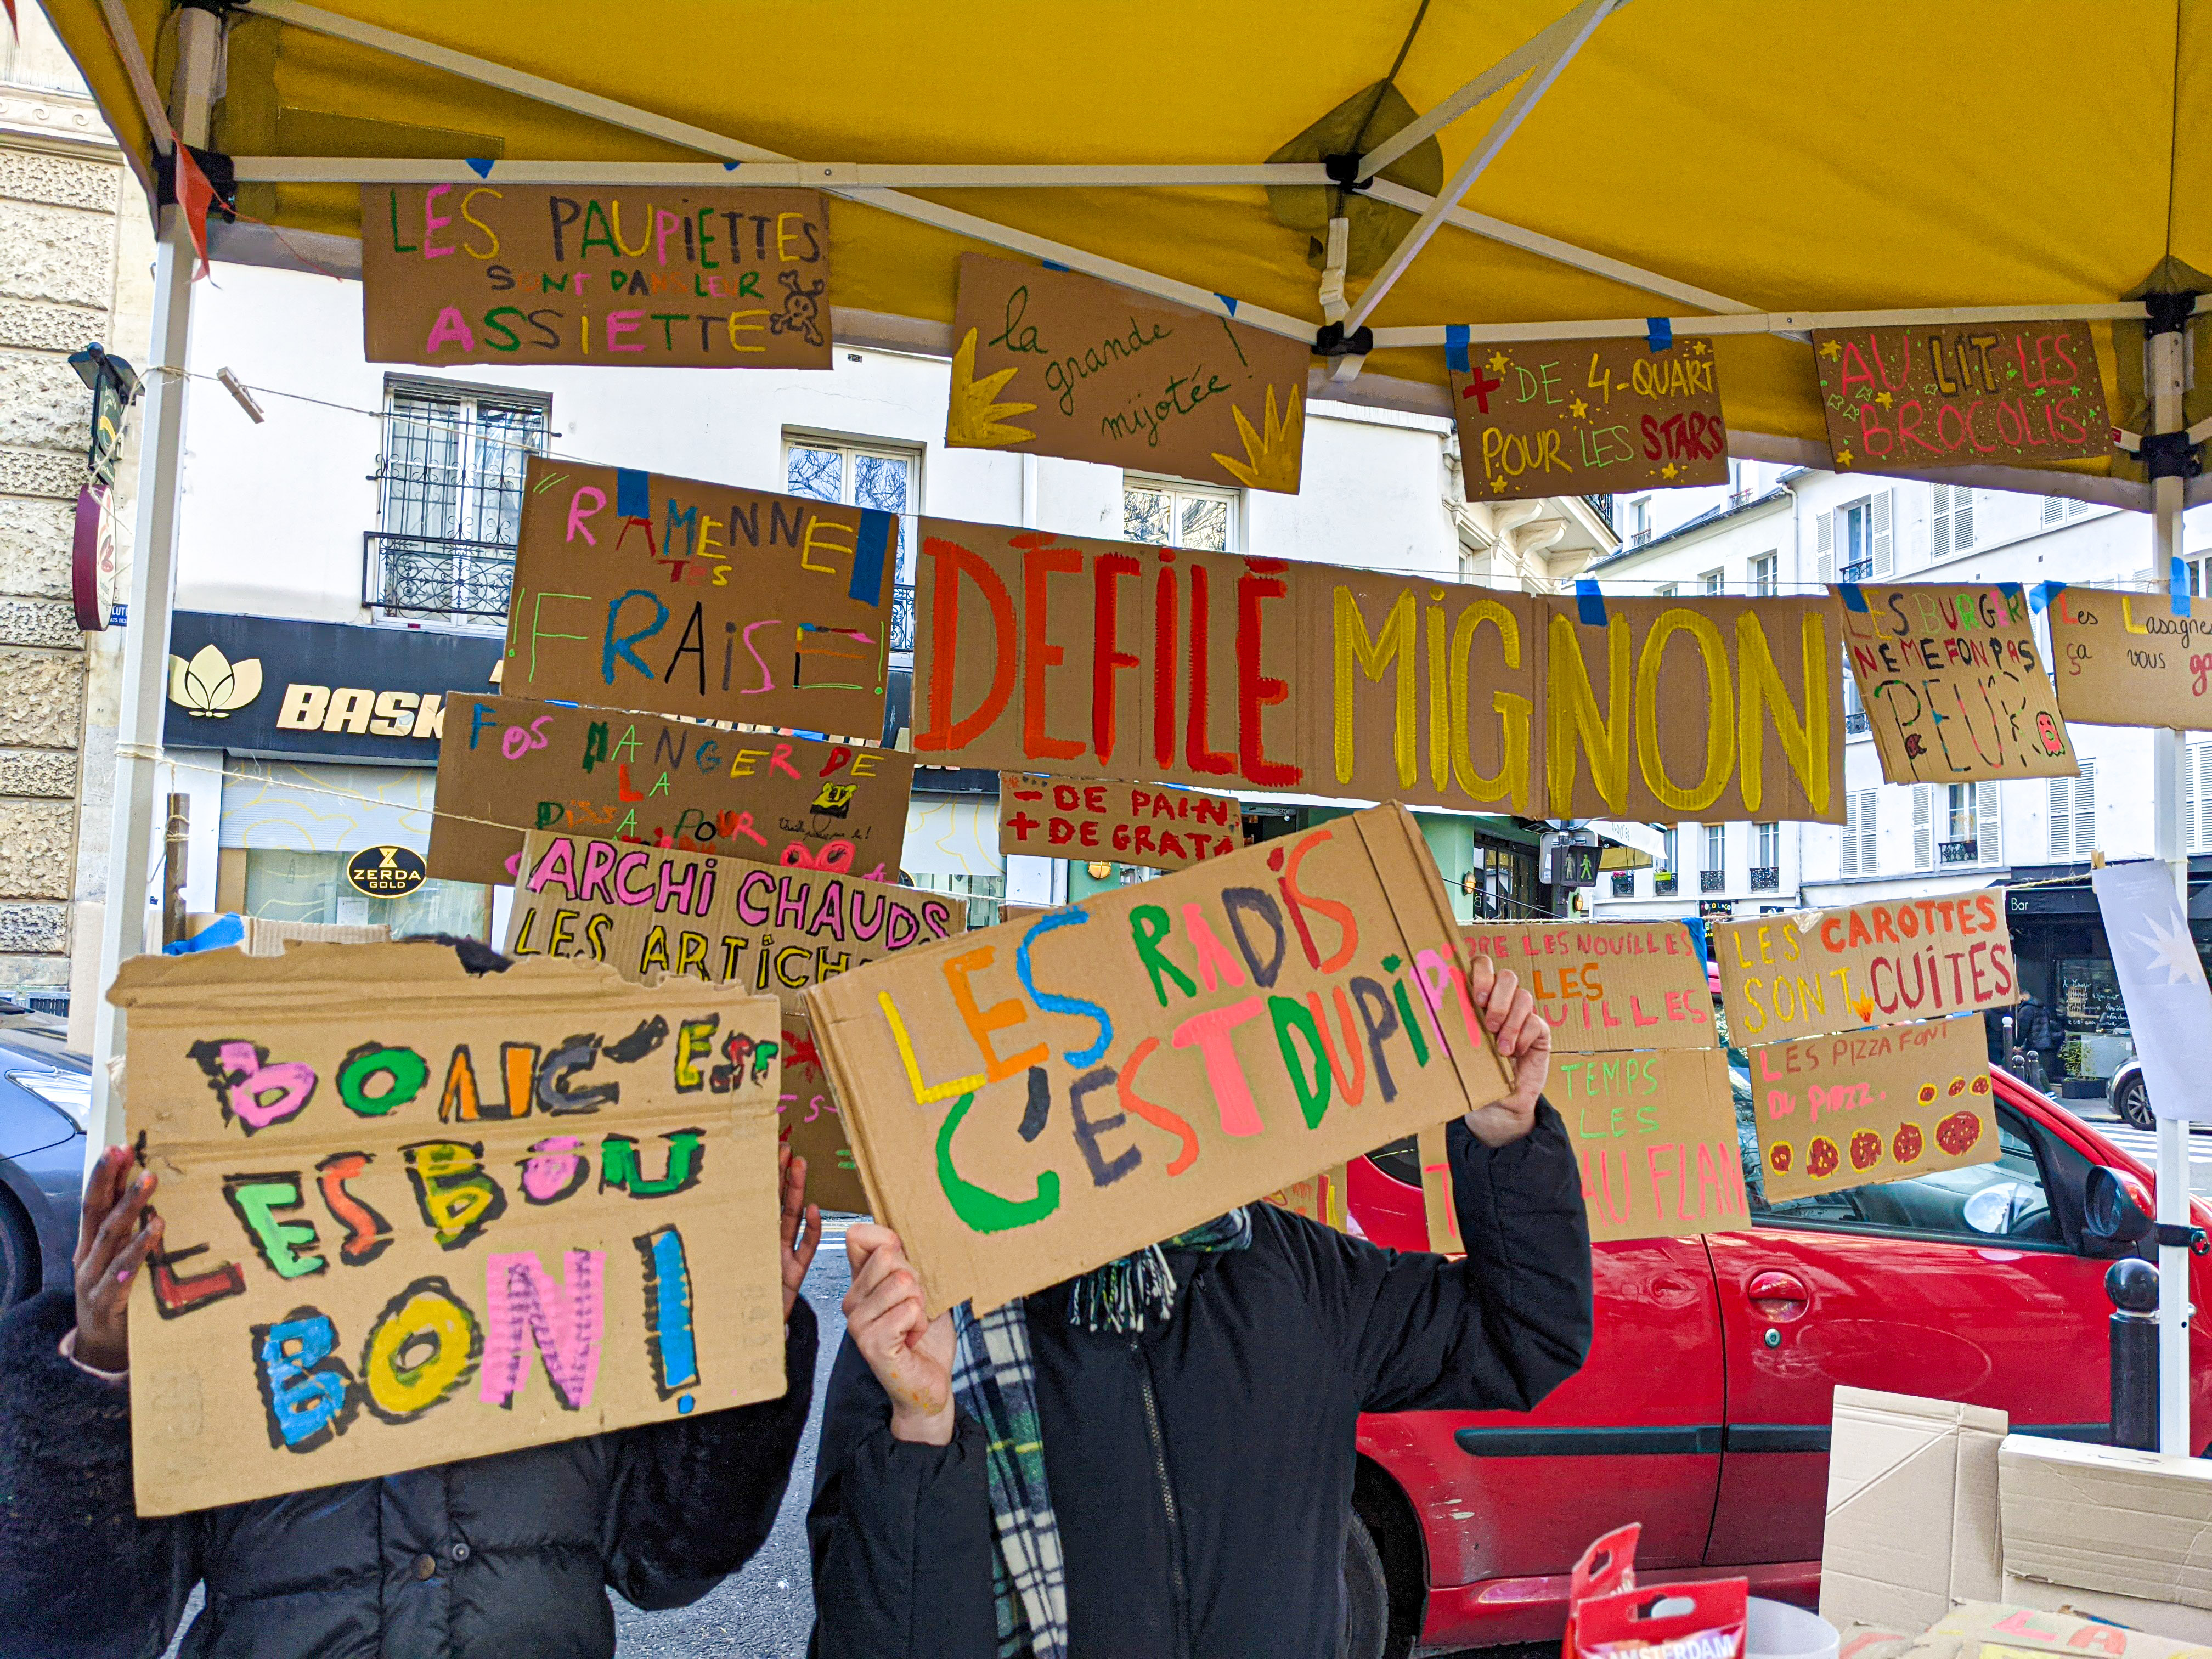 LES PAUPiETTES
SONT DANS LEUR
ASSiETTE
la
grande
mijotée !
+ DE 4-QUART
POUR LES STARS
AU LIT LES
BROCOLIS
RAMENNE
TES
! FRAiSE !
DÉFiLÉ MiGNON
LES BURGER
NE ME FON PAS
PEUR
Les Lasagne
ça vous
FOS MANGER DE
LA
POUR
- DE PAIN
+ DE GRAT
ARCHi CHAUDS
LES ARTiCH
BASK
ZERDA
GOLD
Bar
LES NOUiLLES
LES
UiLLES
LES CAROTTES
SONT CUiTES
TEMPS
LES
AU FLAN
LES PIZZA FONT
DU PIZZ.
BONC'EST
LESBON
BON!
LES RADiS
C'EST DU PiPi
AMSTERDAM
LA